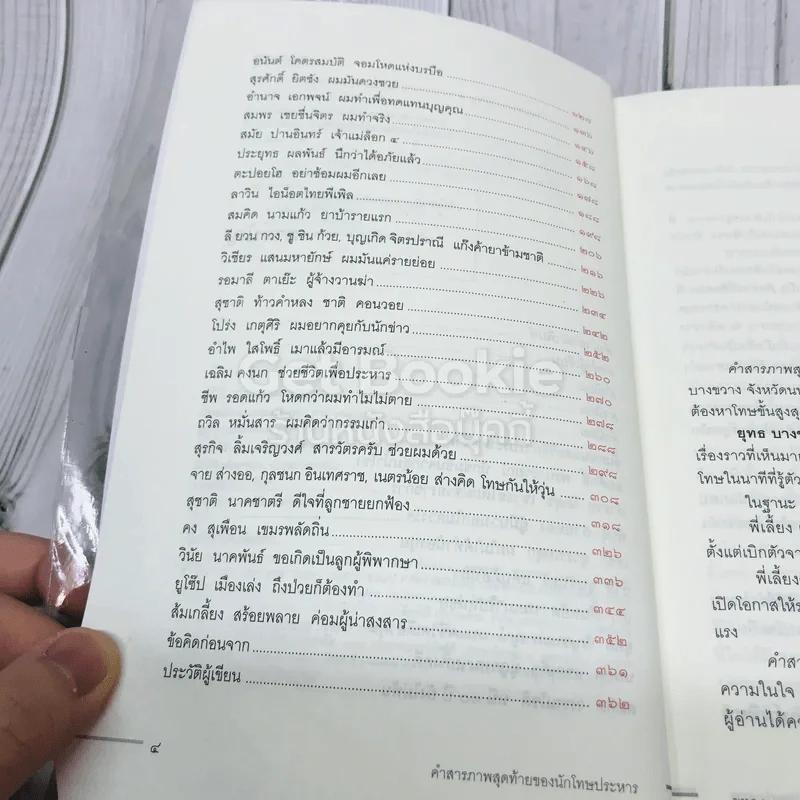 อนันต์ โคตรสมบัติ จอมโหดแห่งบรบือ ๑๒๗
สุรศักดิ์ ยิตซัง ผมมันดวงซวย ๑๓๖
อำนาจ เอกพจน์ ผมทำเพื่อทดแทนบุญคุณ ๑๔๖
สมพร เชยชื่นจิตร ผมทำจริง ๑๕๘
สมัย ปานอินทร์ เจ้าแม่ล็อก ๔ ๑๖๘
ประยุทธ ผลพันธ์ นึกว่าได้อภัยแล้ว ๑๗๘
ตะปอยโฮ อย่าซ้อมผมอีกเลย ๑๘๘
ลาวิน ไอน็อตไทยพีเพิล ๑๙๘
สมคิด นามแก้ว ยาบ้ารายแรก ๒๐๖
ลี ยวน กวง, ชู ชิน ก้วย, บุญเกิด จิตรปราณี แก๊งค้ายาข้ามชาติ ๒๑๖
วิเชียร แสนมหายักษ์ ผมมันแค่รายย่อย ๒๒๖
รอมาลี ตาเย๊ะ ผู้จ้างวานฆ่า ๒๓๔
สุชาติ ท้าวคำหลง ชาติ คอนวอย ๒๔๒
โปร่ง เกตุศิริ ผมอยากคุยกับนักข่าว ๒๕๒
อำไพ ใสโพธิ์ เมาแล้วมีอารมณ์ ๒๖๐
เฉลิม คงนก ช่วยชีวิตเพื่อประหาร ๒๗๐
ชีพ รอดแก้ว โหดกว่าผมทำไมไม่ตาย ๒๗๘
ถวิล หมั่นสาร ผมคิดว่ากรรมเก่า ๒๘๘
สุรกิจ ลิ้มเจริญวงศ์ สารวัตรครับ ช่วยผมด้วย ๒๙๘
จาย ส่างออ, กุลชนก อินเทศราช, เนตรน้อย ส่างคิด โทษกันให้วุ่น ๓๐๘
สุชาติ นาคชาตรี ดีใจที่ลูกชายยกฟ้อง ๓๑๘
คง สุเพือน เขมรพลัดถิ่น ๓๒๖
วินัย นาคพันธ์ ขอเกิดเป็นลูกผู้พิพากษา ๓๓๖
ยูโซ๊ป เมืองเล่ง ถึงป่วยก็ต้องทำ ๓๔๔
ส้มเกลี้ยง สร้อยพลาย ค่อมผู้น่าสงสาร ๓๕๒
ข้อคิดก่อนจาก ๓๖๑
ประวัติผู้เขียน ๓๖๒
๔
คำสารภาพสุดท้ายของนักโทษประหาร
Get Bookie
ร้านหนังสือบุ๊คกี้
คำสารภาพสุ
บางขวาง จังหวัดน
ต้องหาโทษขั้นสูงสุ
ยุทธ บาง
เรื่องราวที่เห็นมา
โทษในนาทีที่รู้ตัว
ในฐานะ
พี่เลี้ยง
ตั้งแต่เบิกตัวจา
พี่เลี้ยง
เปิดโอกาสให้
แรง
คำสาร
ความในใจ
ผู้อ่านได้